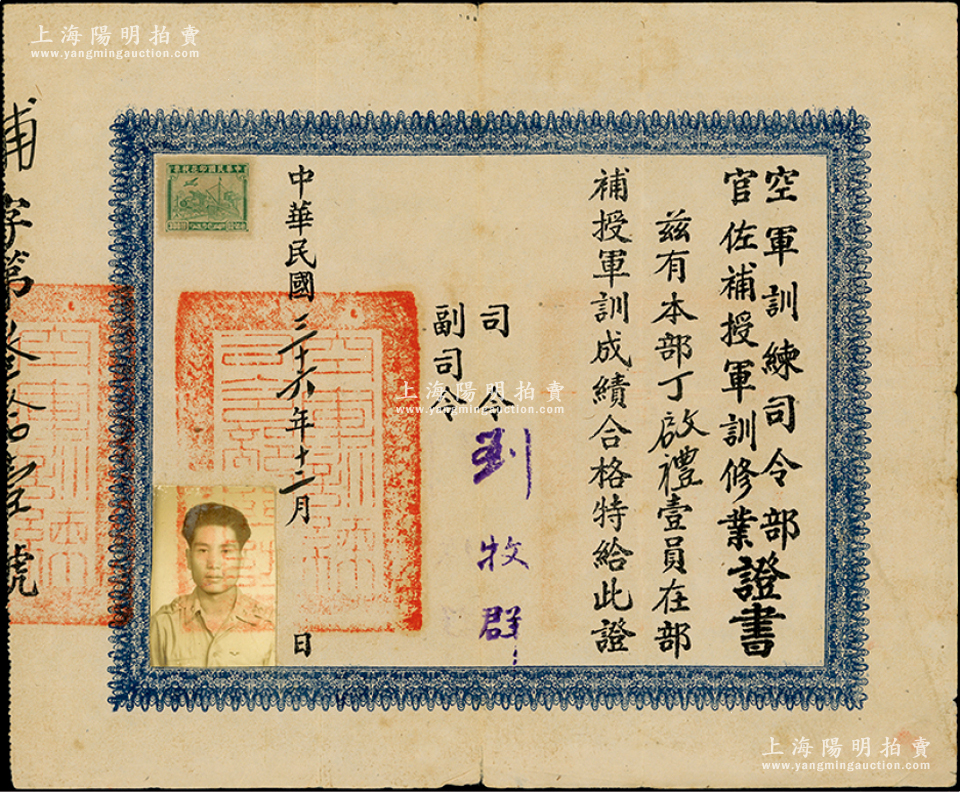 空軍訓練司令部
官佐補授軍訓修業證書
茲有本部丁啟禮壹員在部
補授軍訓成績合格特給此證
司令 劉牧群
副司令
中華民國三十六年十二月 日
中華民國印花稅票
字第
號
上海陽明拍賣
www.yangmingauction.com
上海陽明拍賣
www.yangmingauction.com
上海陽明拍賣
www.yangmingauction.com